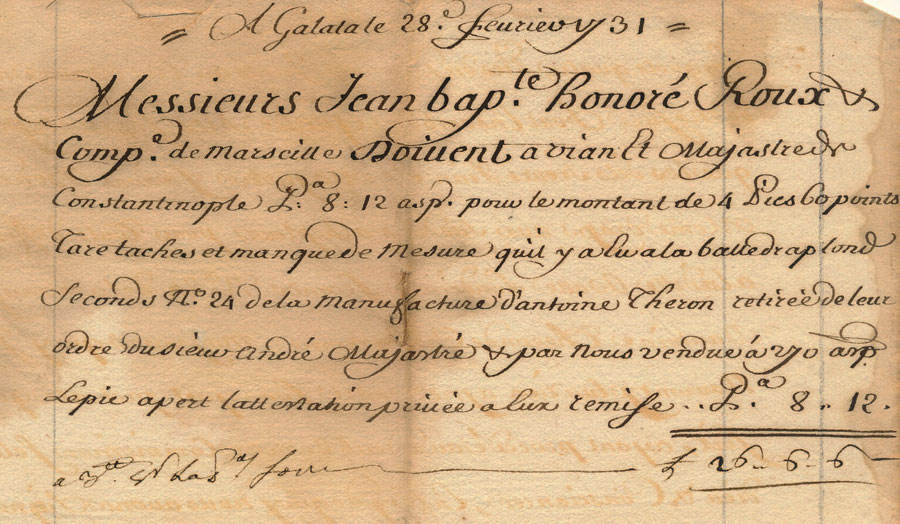 = A Galatale 28.e feurier 1731 =
Messieurs Jean bap.te honoré Roux &
Comp.e de marseille Doiuent a vian Et Majastre de
Constantinople P.a 8: 12 asp. pour le montant de 4 Pics 60 points
Tare taches et manque de Mesure quil y a Eu a la balle drap lond
Seconds N.o 24 de la manufacture d'antoine Theron retirée de leur
ordre du sieur André Majastré & par Nous vendue á 270 asp.
Le pic apert lattestation privée a Eux remise .. P.a 8 .. 12.
a 3 ₶ 26 .. 6 .. 6